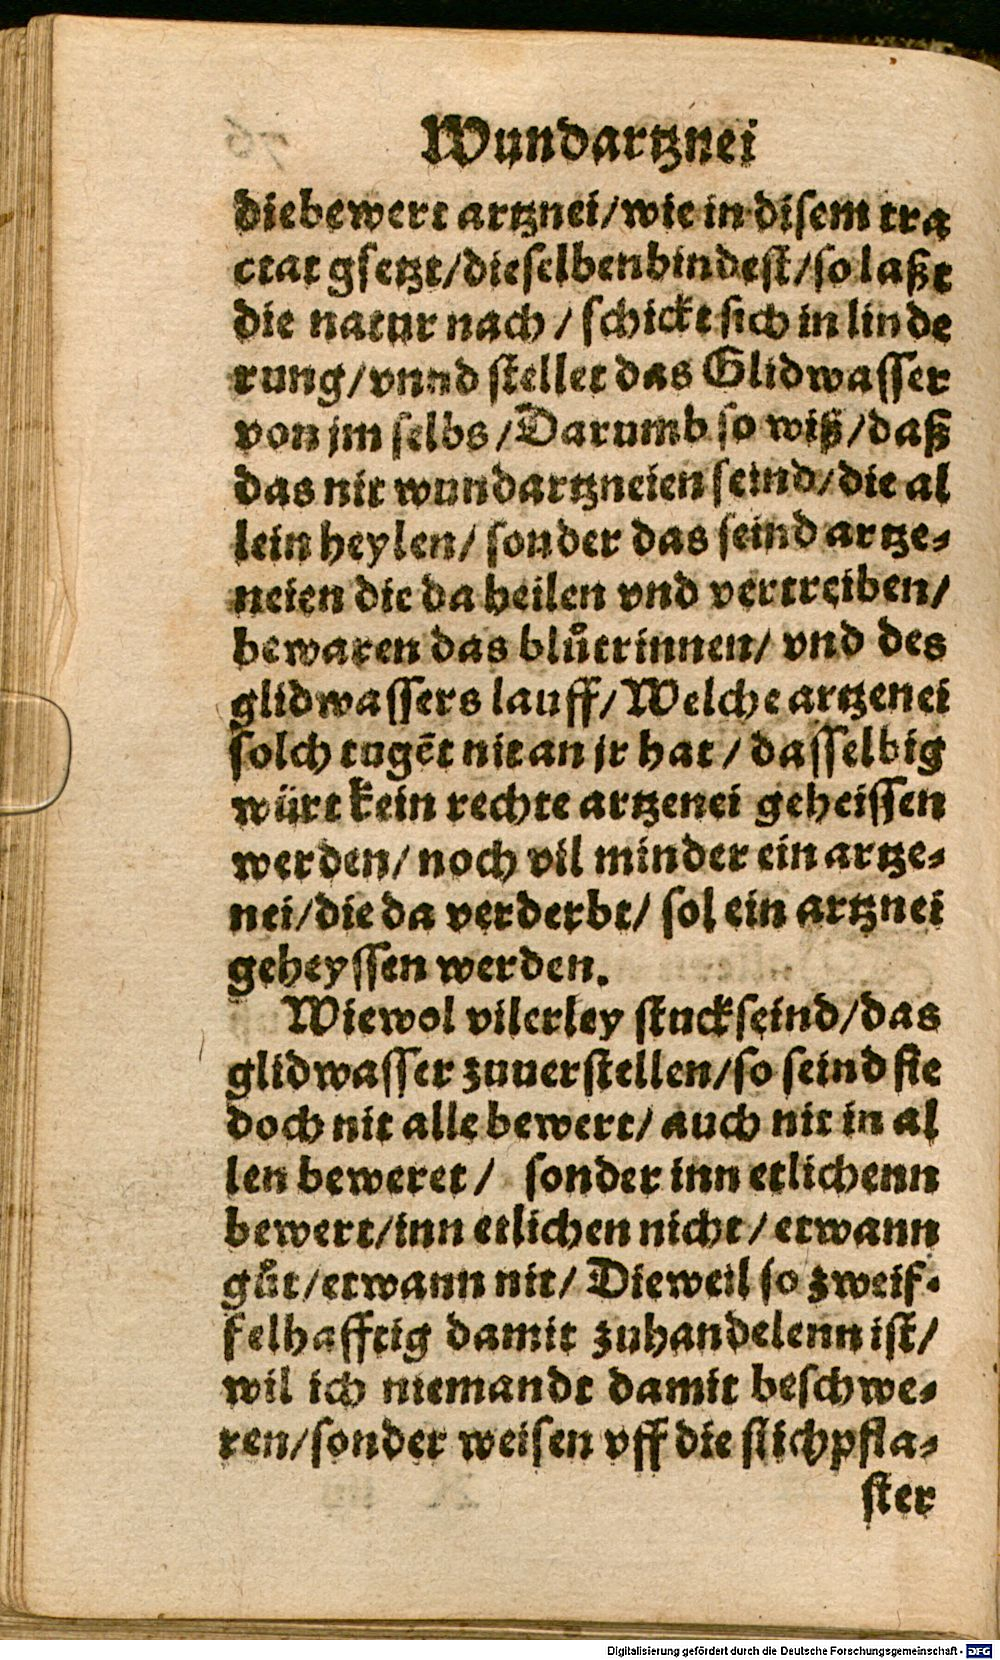 Wundartznei
die bewert artznei/wie in disem tra
ctat gsetzt/dieselben bindest/so laßt
die natur nach / schickt sich in linde
rung/vnnd stellet das Glidwasser
von jm selbs /Darumb so wiß/daß
das nit wundartzneien seind/die al
lein heylen/ sonder das seind artze-
neien die da heilen vnd vertreiben/
bewaren das blůtrinnen/ vnd des
glidwassers lauff/Welche artzenei
solch tugẽt nit an jr hat / dasselbig
würt kein rechte artzenei geheissen
werden/ noch vil minder ein artze-
nei/die da verderbt/ sol ein artznei
geheyssen werden.
Wiewol vilerley stuck seind/das
glidwasser zuuerstellen/so seind sie
doch nit alle bewert/ auch nit in al
len beweret / sonder inn etlichenn
bewert/inn etlichen nicht / etwann
gůt/etwann nit/ Dieweil so zweif-
felhafftig damit zuhandelenn ist/
wil ich niemandt damit beschwe-
ren/sonder weisen vff die stichpfla-
ster
Digitalisierung gefördert durch die Deutsche Forschungsgemeinschaft - DFG